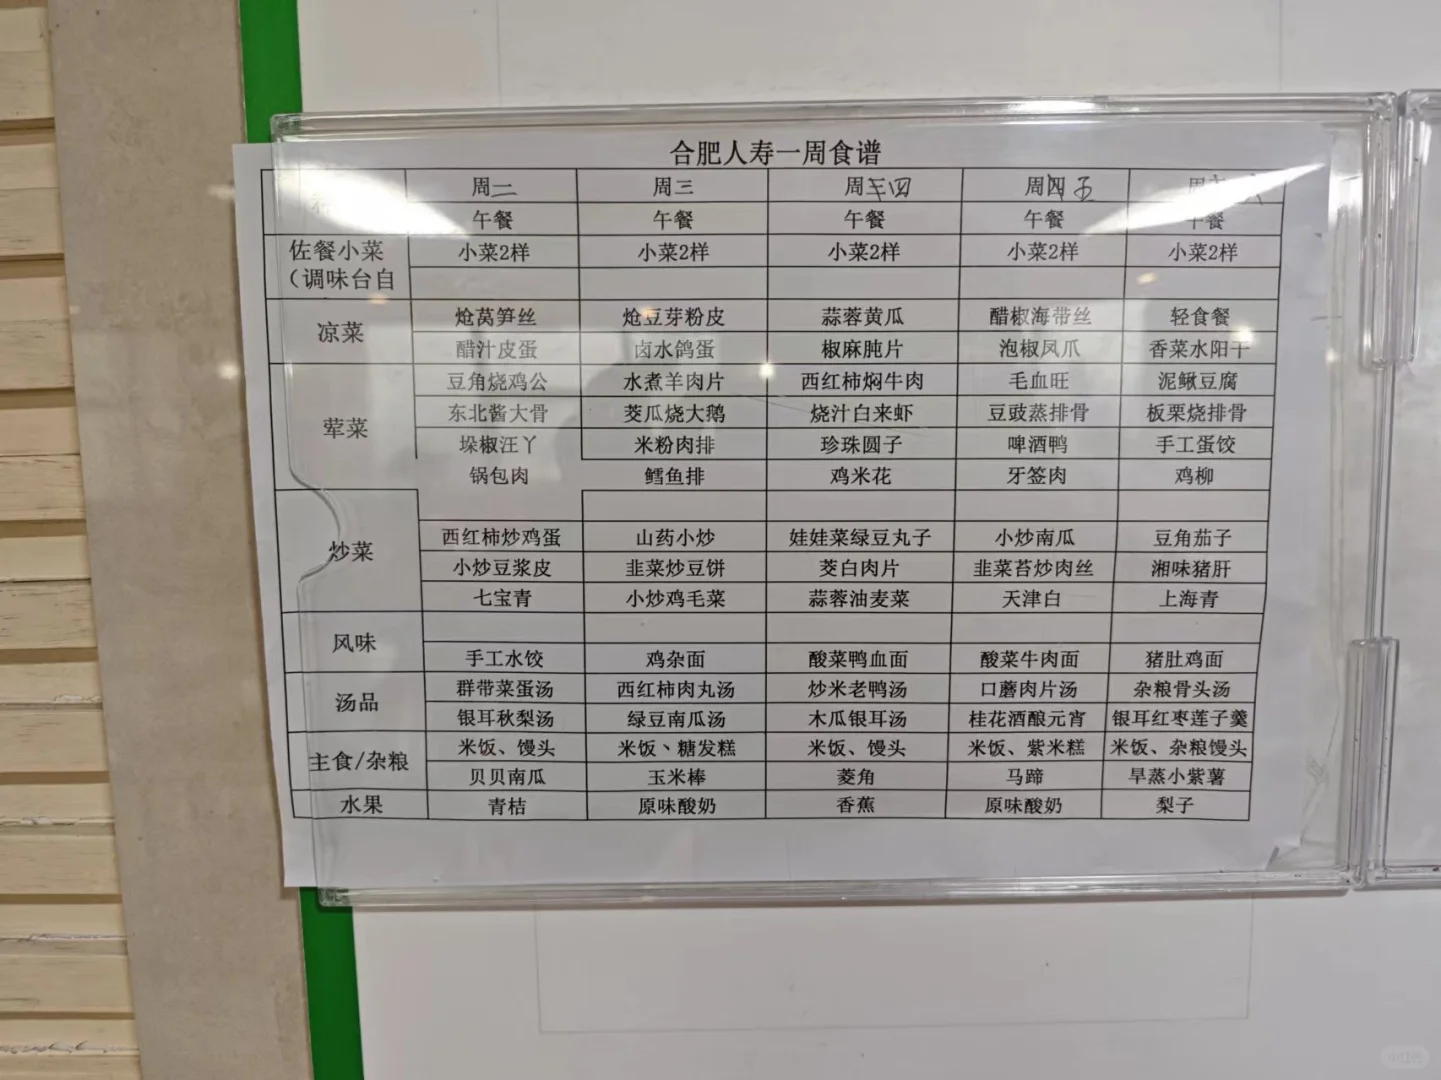 合肥人寿一周食谱
周二 周三 周四 周五
午餐 午餐 午餐 午餐 午餐
佐餐小菜 小菜2样 小菜2样 小菜2样 小菜2样 小菜2样
（调味台自
凉菜 炝莴笋丝 炝豆芽粉皮 蒜蓉黄瓜 醋椒海带丝 轻食餐
醋汁皮蛋 卤水鸽蛋 椒麻肫片 泡椒凤爪 香菜水阳干
荤菜 豆角烧鸡公 水煮羊肉片 西红柿焖牛肉 毛血旺 泥鳅豆腐
东北酱大骨 茭瓜烧大鹅 烧汁白来虾 豆豉蒸排骨 板栗烧排骨
垛椒汪丫 米粉肉排 珍珠圆子 啤酒鸭 手工蛋饺
锅包肉 鳕鱼排 鸡米花 牙签肉 鸡柳
炒菜 西红柿炒鸡蛋 山药小炒 娃娃菜绿豆丸子 小炒南瓜 豆角茄子
小炒豆浆皮 韭菜炒豆饼 茭白肉片 韭菜苔炒肉丝 湘味猪肝
七宝青 小炒鸡毛菜 蒜蓉油麦菜 天津白 上海青
风味 手工水饺 鸡杂面 酸菜鸭血面 酸菜牛肉面 猪肚鸡面
汤品 群带菜蛋汤 西红柿肉丸汤 炒米老鸭汤 口蘑肉片汤 杂粮骨头汤
银耳秋梨汤 绿豆南瓜汤 木瓜银耳汤 桂花酒酿元宵 银耳红枣莲子羹
主食/杂粮 米饭、馒头 米饭丶糖发糕 米饭、馒头 米饭、紫米糕 米饭、杂粮馒头
贝贝南瓜 玉米棒 菱角 马蹄 旱蒸小紫薯
水果 青桔 原味酸奶 香蕉 原味酸奶 梨子